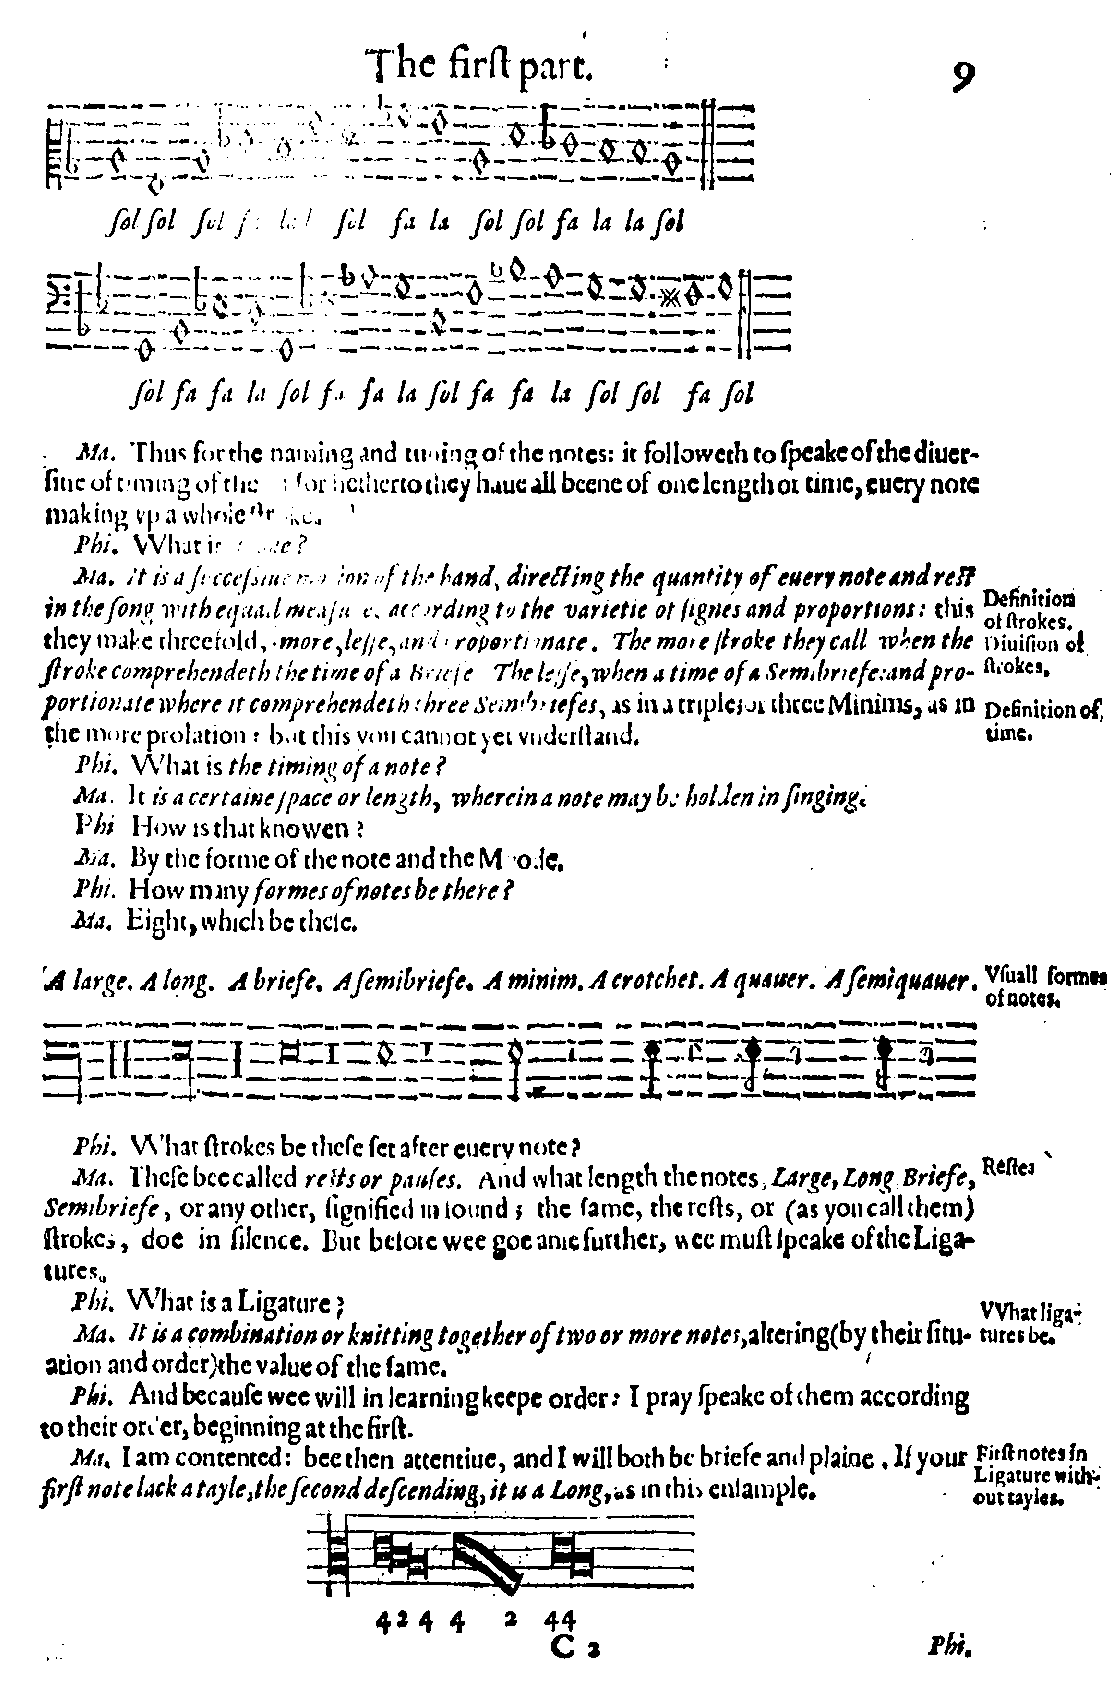 The firſt part.
9
ſol ſol ſol la ſol fa la ſol ſol fa la la ſol
ſol fa fa la ſol fa fa la ſol fa fa la ſol ſol fa ſol
Ma. Thus for the naming and tuning of the notes: it followeth to ſpeake of the diuer-
ſitie of timing of the for hetherto they haue all beene of one length or time, euery note
making vp a whole
Phi. What is
Ma. It is a ſucceſsiue motion of the hand, directing the quantity of euery note and reſt
in the ſong with equall meaſure, according to the varietie of ſignes and proportions: this
Definition
of ſtrokes.
they make threefold, more, leſſe, and proportionate. The more ſtroke they call when the
Diuiſion of
ſtroke comprehendeth the time of a Briefe The leſſe, when a time of a Semibriefe: and pro-
ſtrokes.
portionate where it comprehendeth three Semibriefes, as in a triple or three Minims, as in
Definition of
the more prolation: but this you cannot yet vnderſtand.
time.
Phi. What is the timing of a note?
Ma. It is a certaine ſpace or length, wherein a note may be holden in ſinging.
Phi How is that knowen?
Ma. By the forme of the note and the Moode.
Phi. How many formes of notes be there?
Ma. Eight, which be theſe.
A large. A long. A briefe. A ſemibriefe. A minim. A crotchet. A quauer. A ſemiquauer.
Vſuall formes
of notes.
Phi. What ſtrokes be theſe ſet after euery note?
Ma. Theſe bee called reſts or pauſes. And what length the notes, Large, Long Briefe,
Reſtes
Semibriefe, or any other, ſignified in ſound; the ſame, the reſts, or (as you call them)
ſtrokes, doe in ſilence. But before wee goe anie further, wee muſt ſpeake of the Liga-
tures.
Phi. What is a Ligature?
Ma. It is a combination or knitting together of two or more notes, altering (by their ſitu-
VVhat liga-
tures be.
ation and order) the value of the ſame.
Phi. And becauſe wee will in learning keepe order: I pray ſpeake of them according
to their order, beginning at the firſt.
Ma. I am contented: bee then attentiue, and I will both be briefe and plaine. If your
Firſt notes in
Ligature with-
firſt note lack a tayle, the ſecond deſcending, it is a Long, as in this enſample.
out tayles.
4 2 4 4 2 4 4
C 2
Phi.